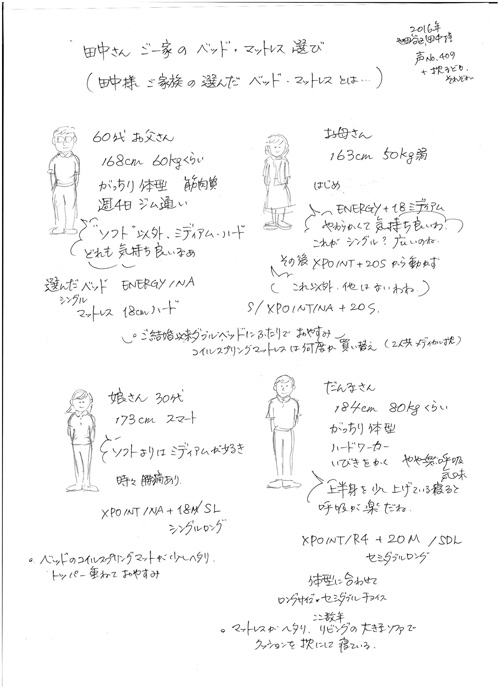 2016年
声No.409
+枕えらび
それぞれ
田中さん ご一家の ベッド・マットレス選び
(田中様ご家族の選んだ ベッド・マットレスとは…)
60代 お父さん
168cm 60kgくらい
がっちり体型 筋肉質
週4日 ジム通い
"ソフト"以外、ミディアム・ハード
どれも気持ち良いなぁ
選んだベッド ENERGY/NA
シングル
マットレス 18cmハード
お母さん
163cm 50kg弱
はじめ
ENERGY+18ミディアム
やわらかくて気持ち良いわ
これがシングル?広いのね
その後 XPOINT+20Sから動かず
(これ以外、他はないわね)
S/XPOINT/NA+20S
○ご結婚以来ダブルベッドにふたりでおやすみ
コイルスプリングマットレスは何度か買い替え
娘さん 30代
173cm スマート
ソフトよりはミディアムが少し好き
時々腰痛あり
XPOINT/NA+18M/SL
シングルロング
○ベッドのコイルスプリングマットが少しヘタリ、
トッパー重ねておやすみ
だんなさん
184cm 80kgくらい
がっちり体型
ハードワーカー
いびきをかく やや無呼吸
気味
上半身を少し上げている寝ると
呼吸が楽だね
XPOINT/R4+20M/SDL
セミダブルロング
体型に合わせて
ロングサイズ・セミダブルチョイス
ここ数年
○マットレスがヘタリ、リビングの大きなソファで
クッションを枕にして寝ている。